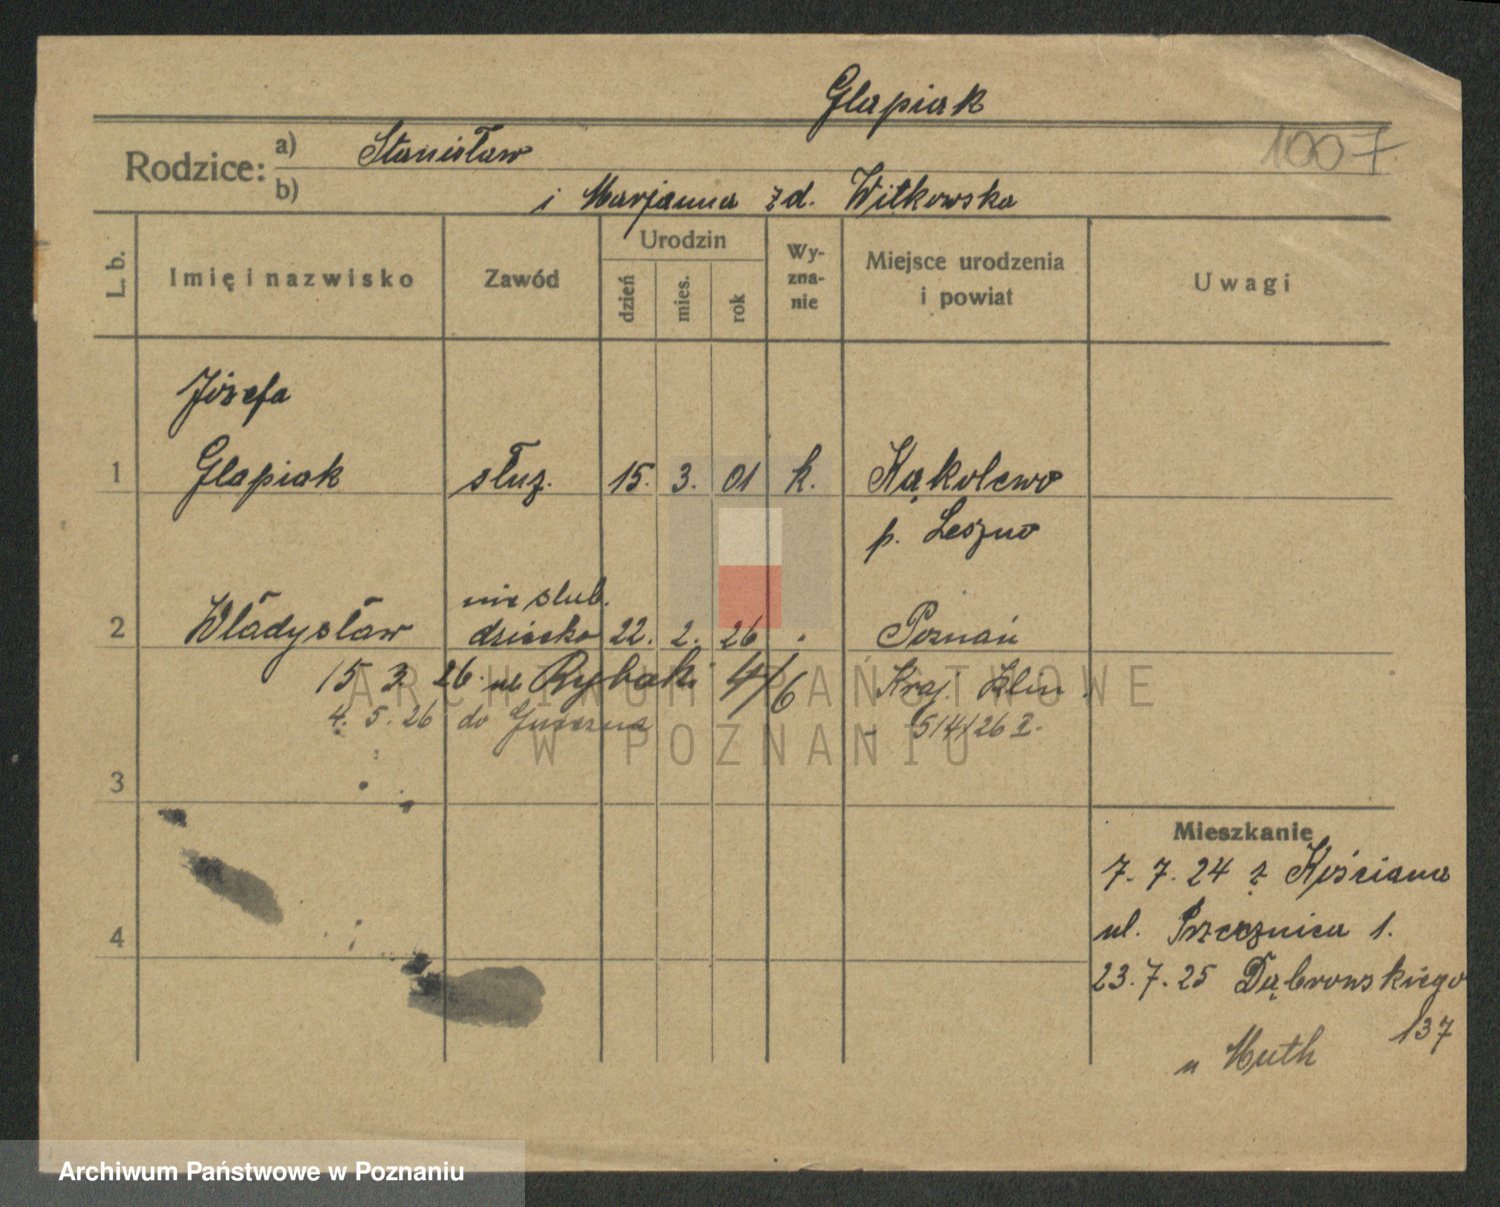 Glapiak
1007
Rodzice: a) Stanisław
b) i Marjanna z d. Witkowska
L. b.
Imię i nazwisko
Zawód
Urodzin
dzień
mies.
rok
Wy-
zna-
nie
Miejsce urodzenia
i powiat
Uwagi
Józefa
1 Glapiak służ. 15. 3. 01 k. Kąkolewo
p. Leszno
nie ślub.
2 Władysław dziecko 22. 2. 26 Poznań
15 3 26 ul Rybaki 4/6 Kraj. Klin.
4. 5. 26 do Gniezna - 5/4/26
3
4
Mieszkanie
7. 7. 24 z Kościana
ul. Przecznica 1.
23. 7. 25 Dąbrowskiego
137
u Muth
ARCHIWUM PAŃSTWOWE
W POZNANIU
Archiwum Państwowe w Poznaniu